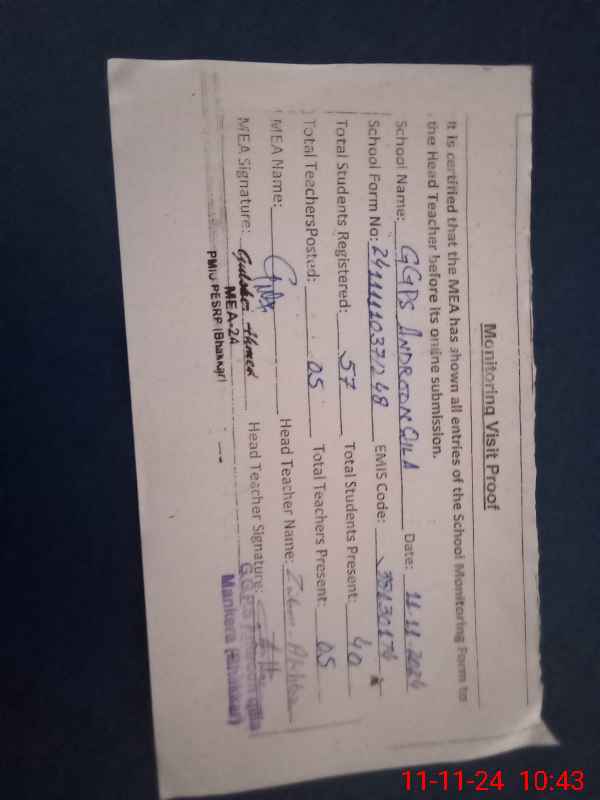 Monitoring Visit Proof
It is certified that the MEA has shown all entries of the School Monitoring Form to
the Head Teacher before its online submission.
School Name: GGPS ANDROON QILA Date: 11.11.2024
School Form No: EMIS Code:
Total Students Registered: 57 Total Students Present: 40
Total TeachersPosted: 05 Total Teachers Present: 05
MEA Name: Head Teacher Name: Akhtar
MEA Signature: Gulsher Ahmed Head Teacher Signature:
MEA-24
PMIU PESRP (Bhakkar)
GGPS Androon Qila
Mankera (Bhakkar)
11-11-24 10:43